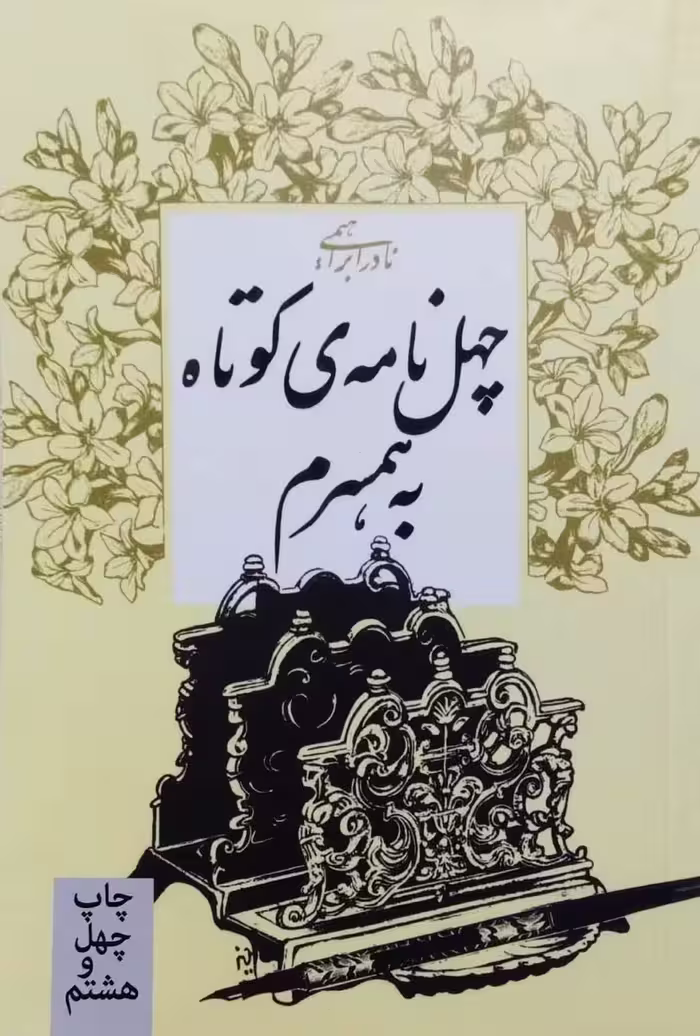 نادر ابراهیمی
چهل نامه‌ی کوتاه
به همسرم
چاپ
چهل
و
هشتم